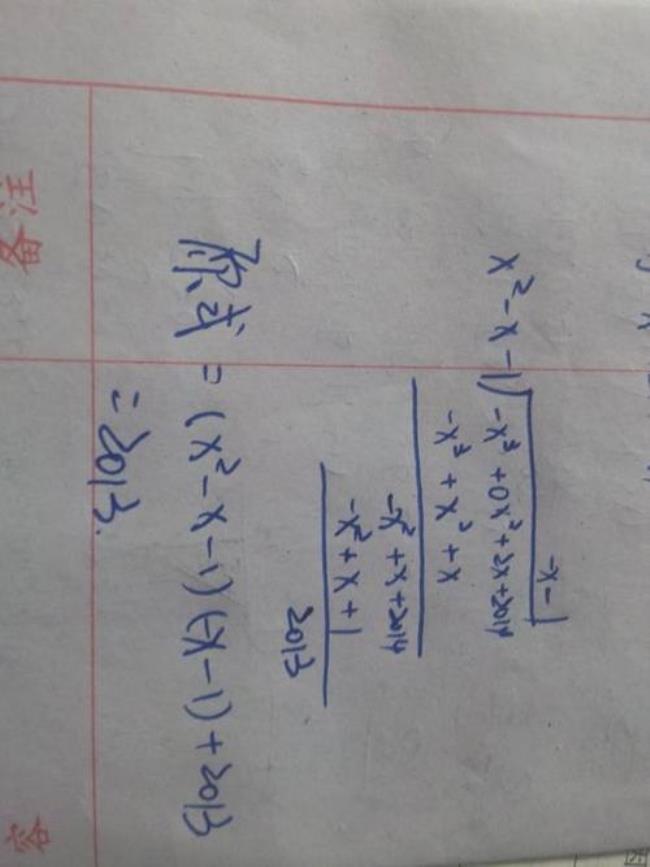 -x-1
x²-x-1)-x³+0x²+2x+2014
-x³+x²+x
-x²+x+2014
-x²+x+1
2013
原式=(x²-x-1)(-x-1)+2013
=2013.
备注